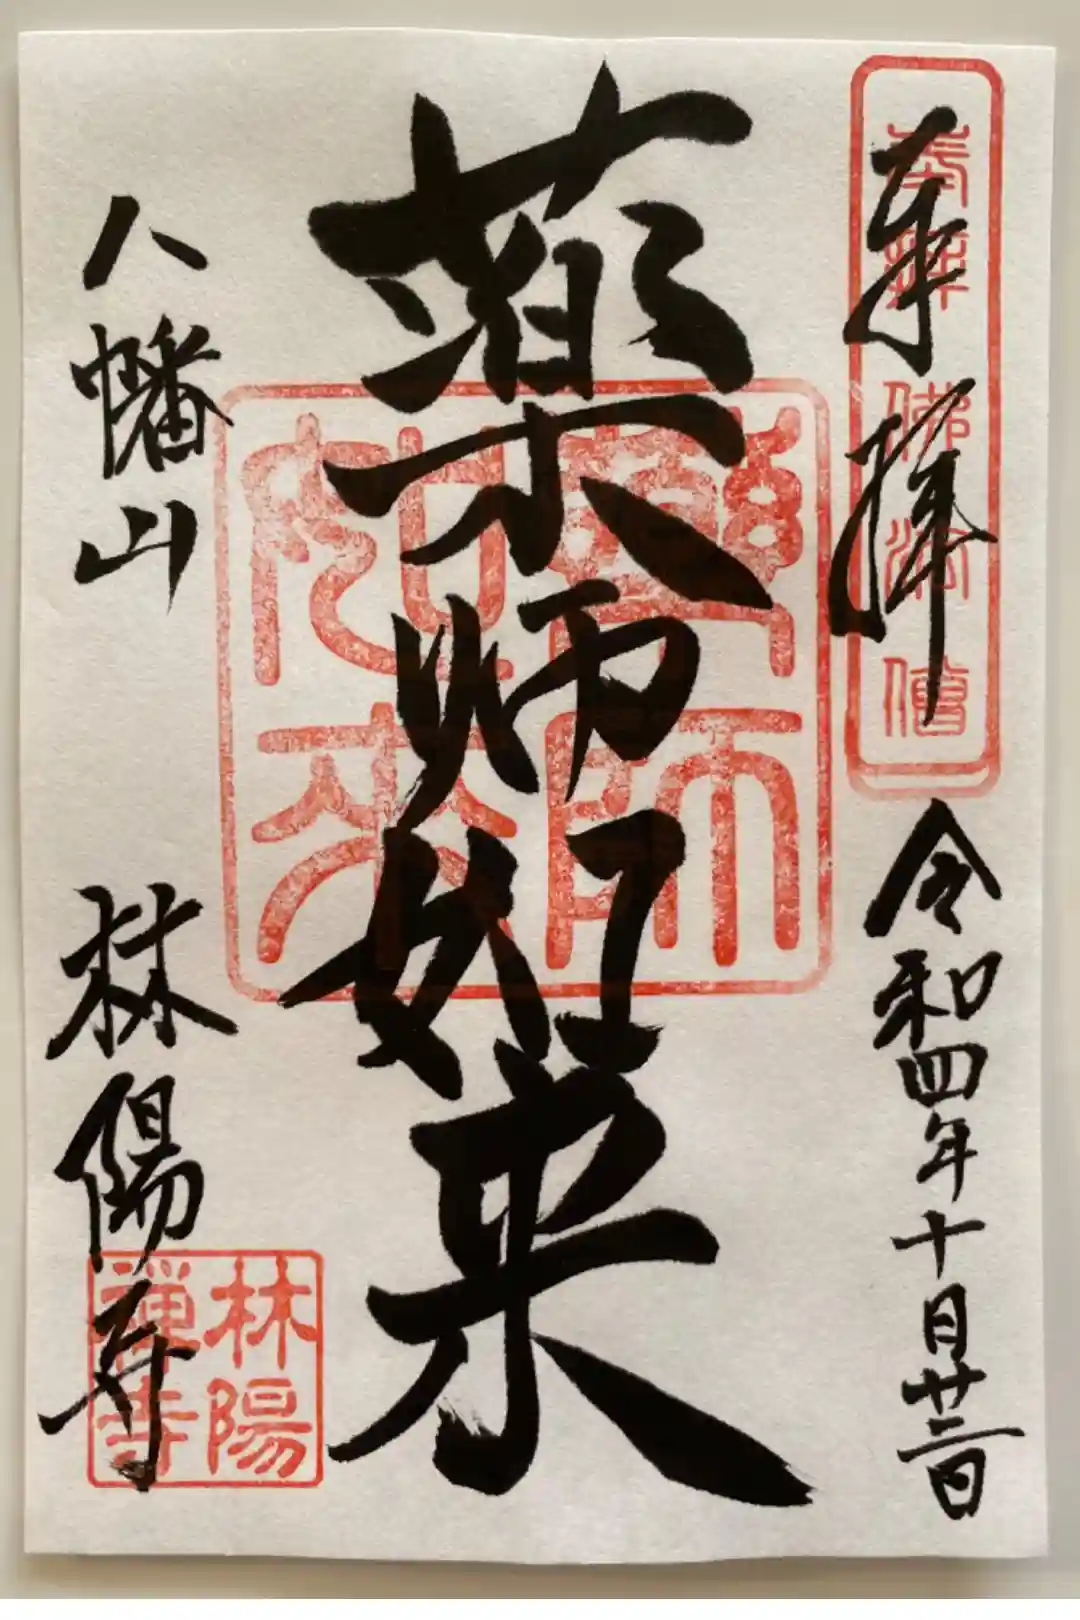 奉拝
令和四年十月廿二日
奉拝
佛法僧
薬師如来
藥師
如来
八幡山
林陽寺
林陽
禅寺